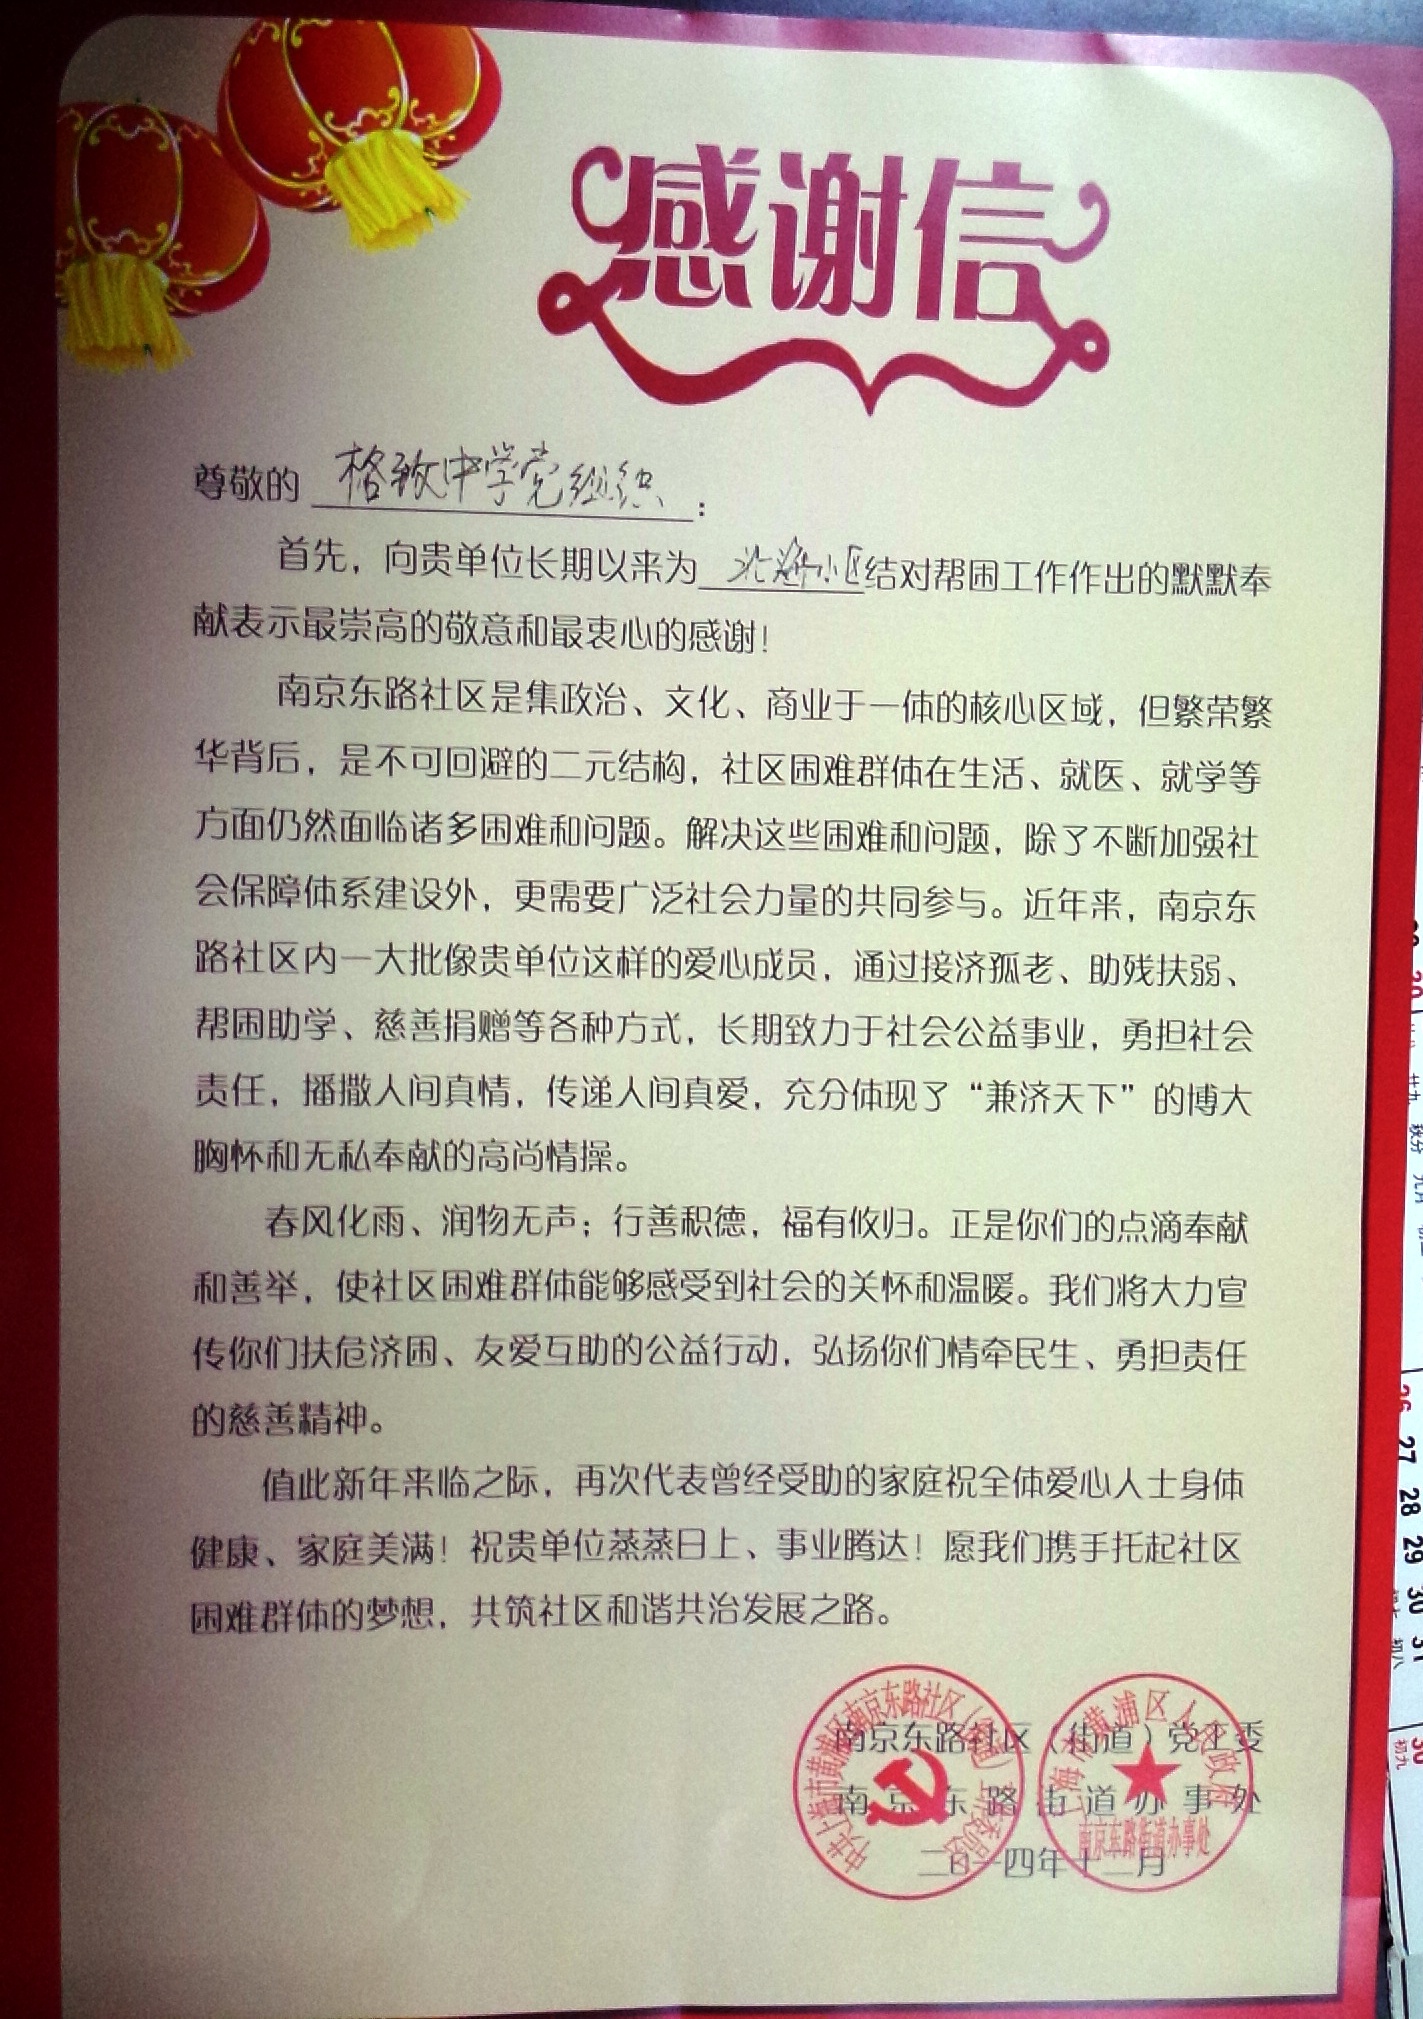 感谢信
尊敬的 格致中学党组织：
首先，向贵单位长期以来为 北海小区结对帮困工作作出的默默奉
献表示最崇高的敬意和最衷心的感谢！
南京东路社区是集政治、文化、商业于一体的核心区域，但繁荣繁
华背后，是不可回避的二元结构，社区困难群体在生活、就医、就学等
方面仍然面临诸多困难和问题。解决这些困难和问题，除了不断加强社
会保障体系建设外，更需要广泛社会力量的共同参与。近年来，南京东
路社区内一大批像贵单位这样的爱心成员，通过接济孤老、助残扶弱、
帮困助学、慈善捐赠等各种方式，长期致力于社会公益事业，勇担社会
责任，播撒人间真情，传递人间真爱，充分体现了“兼济天下”的博大
胸怀和无私奉献的高尚情操。
春风化雨、润物无声；行善积德，福有攸归。正是你们的点滴奉献
和善举，使社区困难群体能够感受到社会的关怀和温暖。我们将大力宣
传你们扶危济困、友爱互助的公益行动，弘扬你们情牵民生、勇担责任
的慈善精神。
值此新年来临之际，再次代表曾经受助的家庭祝全体爱心人士身体
健康、家庭美满！祝贵单位蒸蒸日上、事业腾达！愿我们携手托起社区
困难群体的梦想，共筑社区和谐共治发展之路。
南京东路社区（街道）党工委
南京东路街道办事处
二〇一四年十二月
中共上海市黄浦区南京东路社区（街道）工作委员会
上海市黄浦区人民政府
南京东路街道办事处
26
27
28
29
30
31
初八
30
初九
秋分